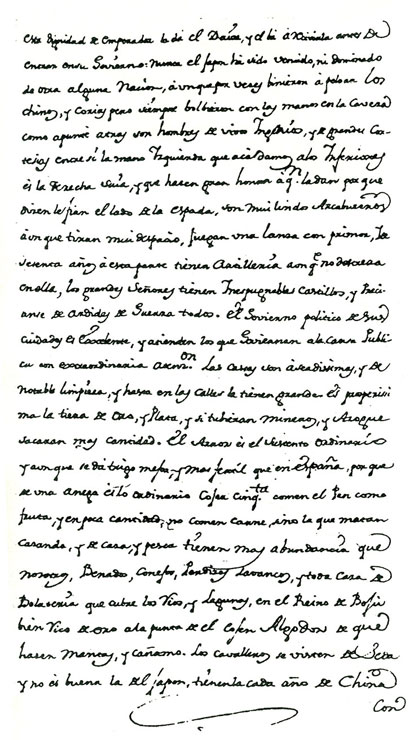 esta dignidad de emperador la dá el Dairo, y el los à treinta años de
entran en su Govierno: Nunca el Japon há sido vencido, ni dominado
de otra alguna Nacion, àunque por veces binieron à pelear los
chinos, y Corias pero siempre bolbieron con las manos en la Caveza
como apunté atras son hombres de vivos Ingenios, y de grandes Cor-
tesias entre si la mano Izquierda que acà damos alos Inferiores
és la derecha suia, y que hacen gran honor à q.n la dan por que
dicen le fian el lado de la espada, son mui lindos Arcabuceros
àunque tiran mui despacio, juegan una lanza con primor, de
setenta años à esta parte tienen Artillería aonq.e no destreza
en ella, los grandes Señores tienen Inexpugnables Castillos, y
ànse de Ardides de Guerra todos. él Govierno politico de sus
ciudades és Excelente, y atienden los que goviernan ala Causa Publi-
ca con extraordinaria atenc.on Las Casas son àseadisimas, y de
notable limpieza, y hasta en las Calles la tienen grande. és prosperisi-
ma la tierra de oro, y Plata, y si tubieran mineros, y Azogue
sacaran mas cantidad. él Arroz és el sustento ordinario
y aunque se dá trigo mejor, y mas fertil que en españa, por que
de una anega és lo ordinario Coger cinq.ta comen el Pan como
fruta, y en poca cantidad; no comen carne, sino la que matan
cazando, y de caza, y pesca tienen mas abundancia que
nosotros, Benado, Conejos, Perdices, Lavancos, y toda caza de
Bolateria que cubre los Rios, y Lagunas, en el Reino de
bien Rico de oro ala punta de el Cojen Algodon de que
hacen mantas, y cañamo. Los cavalleros se visten de Seda
y no és buena la del Japon, tienenla cada año de China
Con